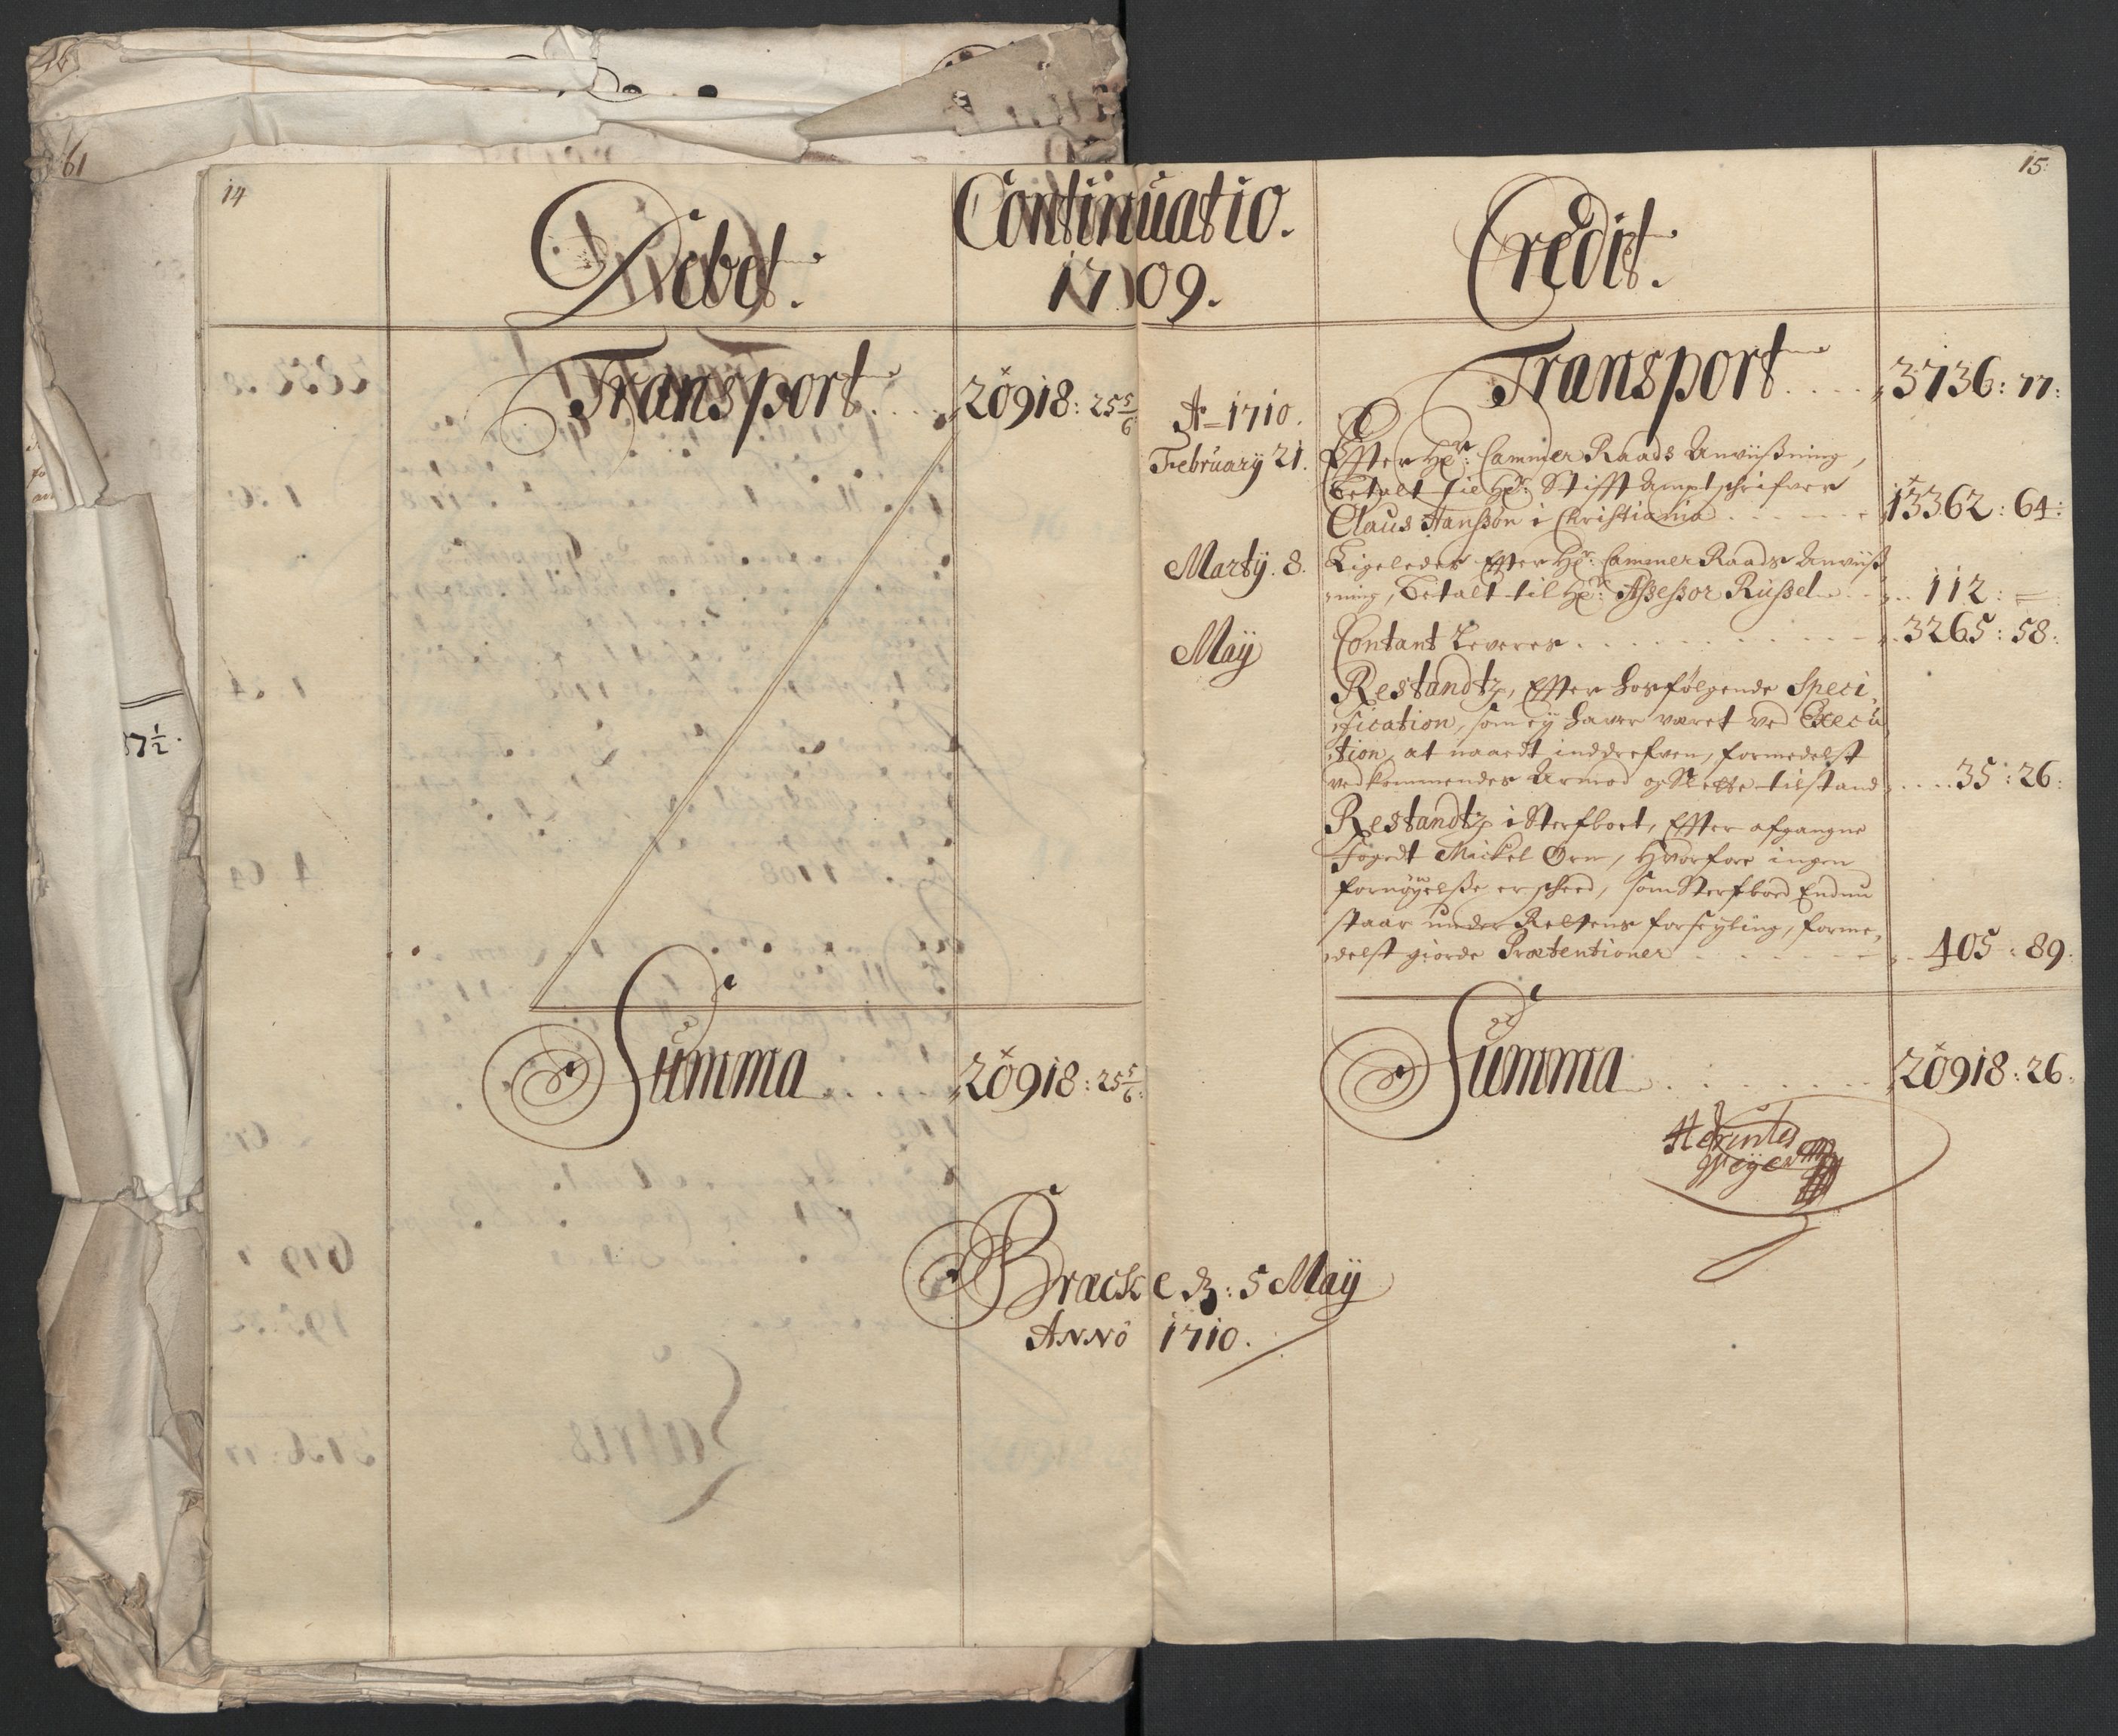 46
61
87 1/2.
14
Debet.
Continuatio.
1709.
Transport .... 20918: 25 5/6
Summa ..... 20918: 25 5/6:
15:
Credit.
Transport .... 3736: 77:
A= 1710.
February 21. Efter Hr: Cammer Raads Anviißning,
Betalt til Hr: Stifft Ampt schrifver
Claus Hanßøn i Christiania ...... 13362: 64:
Marty. 8. Ligeledes Efter Hr: Cammer Raads Anviiß
ning, Betalt til Hr: Aßeßor Rußel ... 112: =
Maÿ Contant Leveres .......... 3265: 58:
Restandtz, Efter hosfølgende Speci,
fication, som eÿ haver været ved Execu
tion, at naaedt inddrefven, formedelst
vedkommendes Armod og Slette tilstand .... 35: 26:
Restandtz i Sterfboet, Efter afgangne
Fogedt Mickel Ørn, Hvorfore ingen
fornøÿelße er scheed, som Sterfboed Endnu
staar under Rettens forseÿling, forme,
delst giorde Prætentioner ...... 405: 89:
Summa ........ 20918: 26:
Bracke d: 5 Maÿ
Anno 1710.